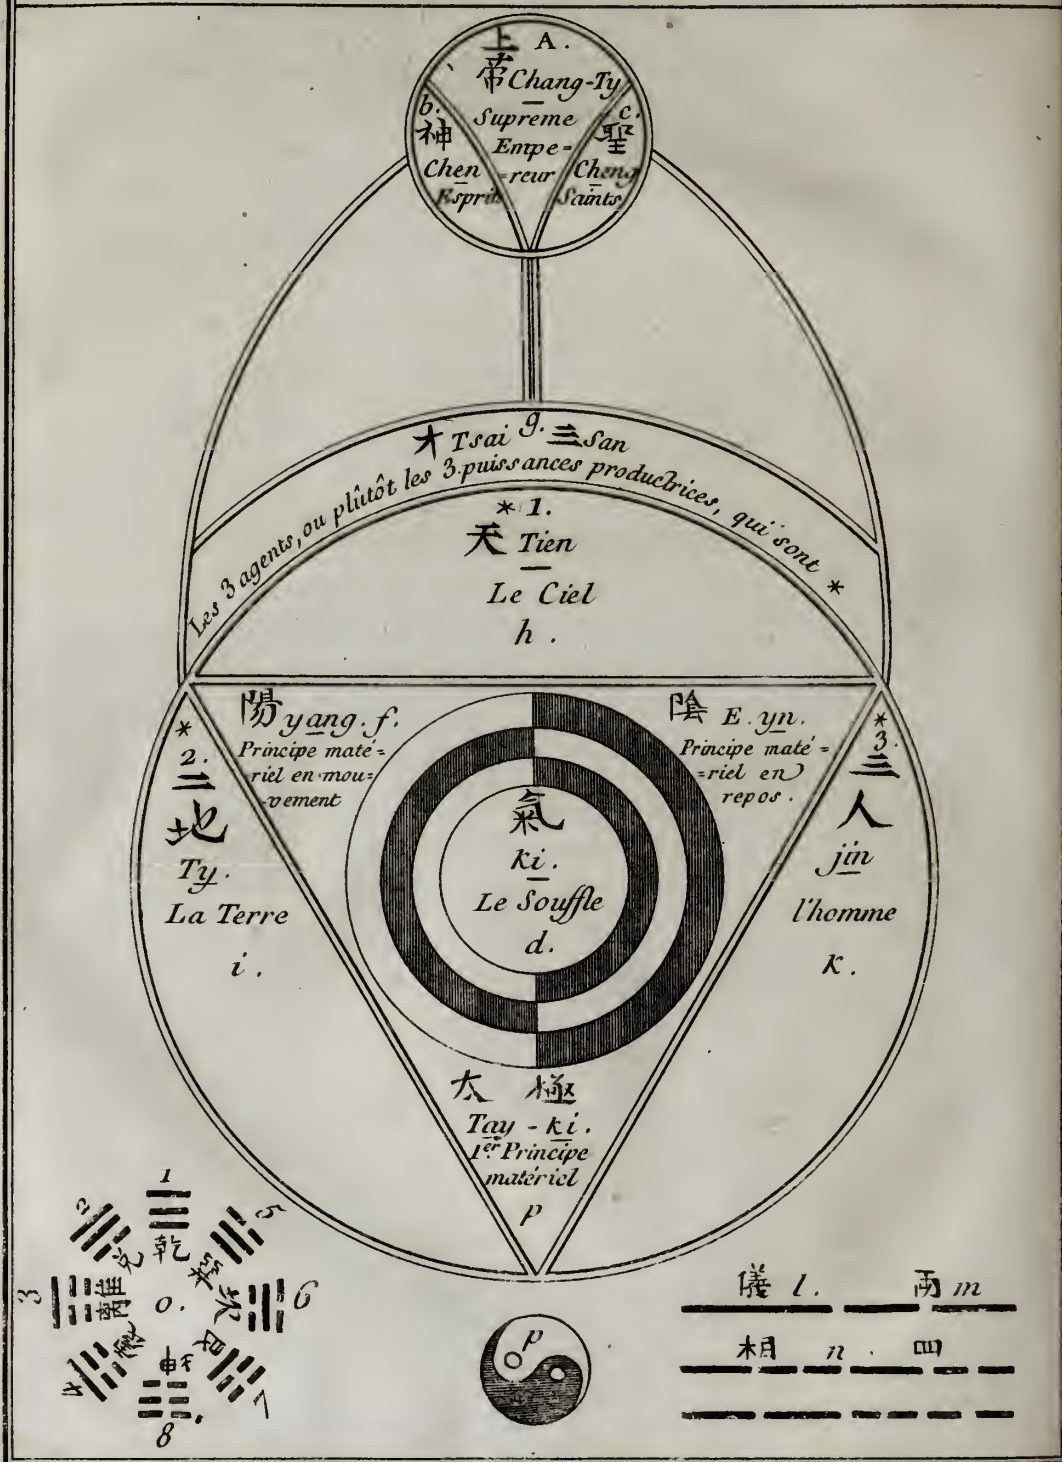 上 A.
帝 Chang-Ty
Supreme
Empe=
=reur
b.
神
Chen
Esprit
c.
聖
Cheng
Saints
才 Tsai g. 三 San
Les 3 agents, ou plûtôt les 3. puissances productrices, qui sont *
* 1.
天 Tien
Le Ciel
h.
陽 yang. f.
Principe maté=
riel en mou=
-vement
陰 E. yn.
Principe maté=
=riel en
repos.
* 2.
二
地
Ty.
La Terre
i.
* 3.
三
人
jin
l'homme
k.
氣
ki.
Le Souffle
d.
太 極
Tay-ki.
1er. Principe
matériel
p
1
乾
2
兌
3
離
4
5
6
坎
7
艮
8
o.
p
儀 l. 兩 m
相 n. 四